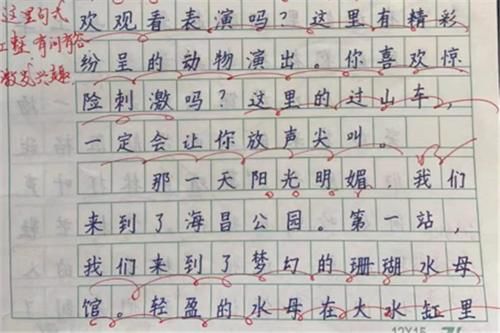 这里句式
工整，有问有答
激发兴趣
欢观看表演吗？这里有精彩
纷呈的动物演出。你喜欢惊
险刺激吗？这里的过山车，
一定会让你放声尖叫。
那一天阳光明媚，我们
来到了海昌公园。第一站，
我们来到了梦幻的珊瑚水母
馆。轻盈的水母在大水缸里
12X15